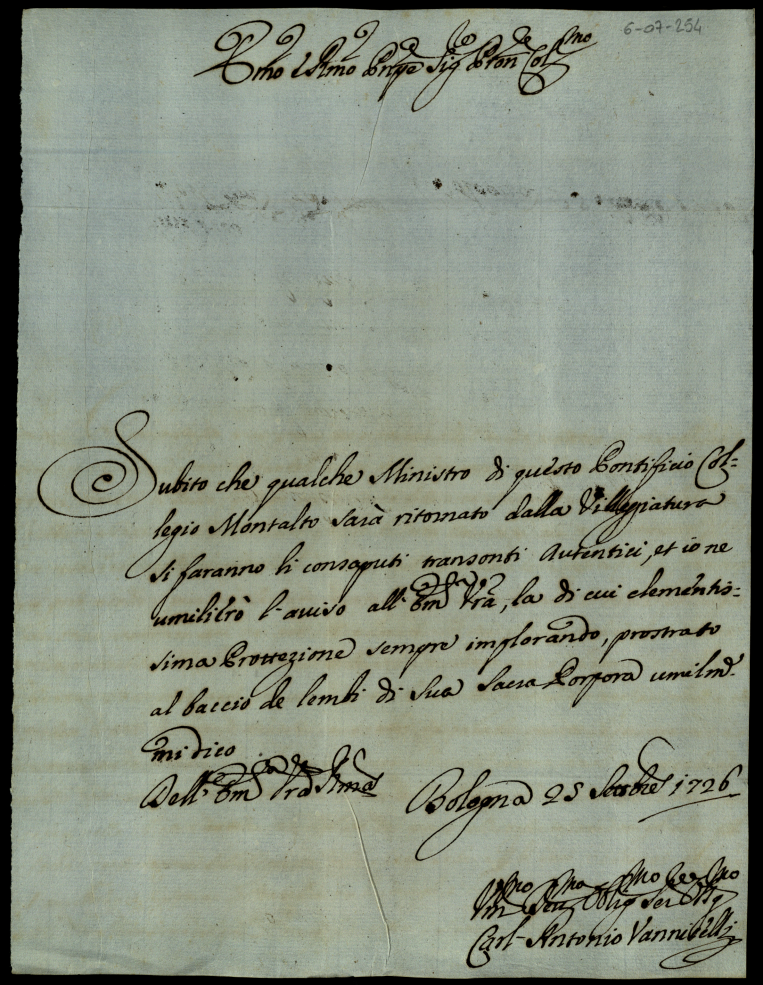 6-07-254
Emo e Rmo Pnpe Sig Pron Col.mo
Subito che qualche Ministro di questo Pontificio Col=
legio Montalto sarà ritornato dalla Villegiatura
si faranno li consaputi transonti Autentici, et io ne
umiliarò l'aviso all'Em.za Vra, la di cui clementis=
sima Protezione sempre implorando, prostrato
al baccio de lembi di Sua Sacra Porpora umilm.e
mi dico
Dell'Em.za Vra Rma
Bologna 25 Settbre 1726
Um.mo Obligmo Ser.re
Carl-Antonio Vannibelli